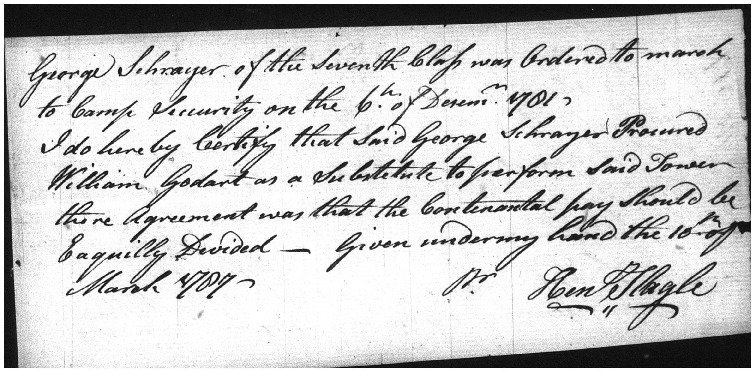 George Schrayer of the Seventh Class was Ordered to march
to Camp Security on the 6th of Desemr 1781
I do hereby Certify that Said George Schrayer Procured
William Godart as a Substetute to perform Said Tower
there Agreement was that the Continantal pay Should be
Eaquilly Divided — Given under my hand the 10th of
March 1787
Pr Henr Slagle